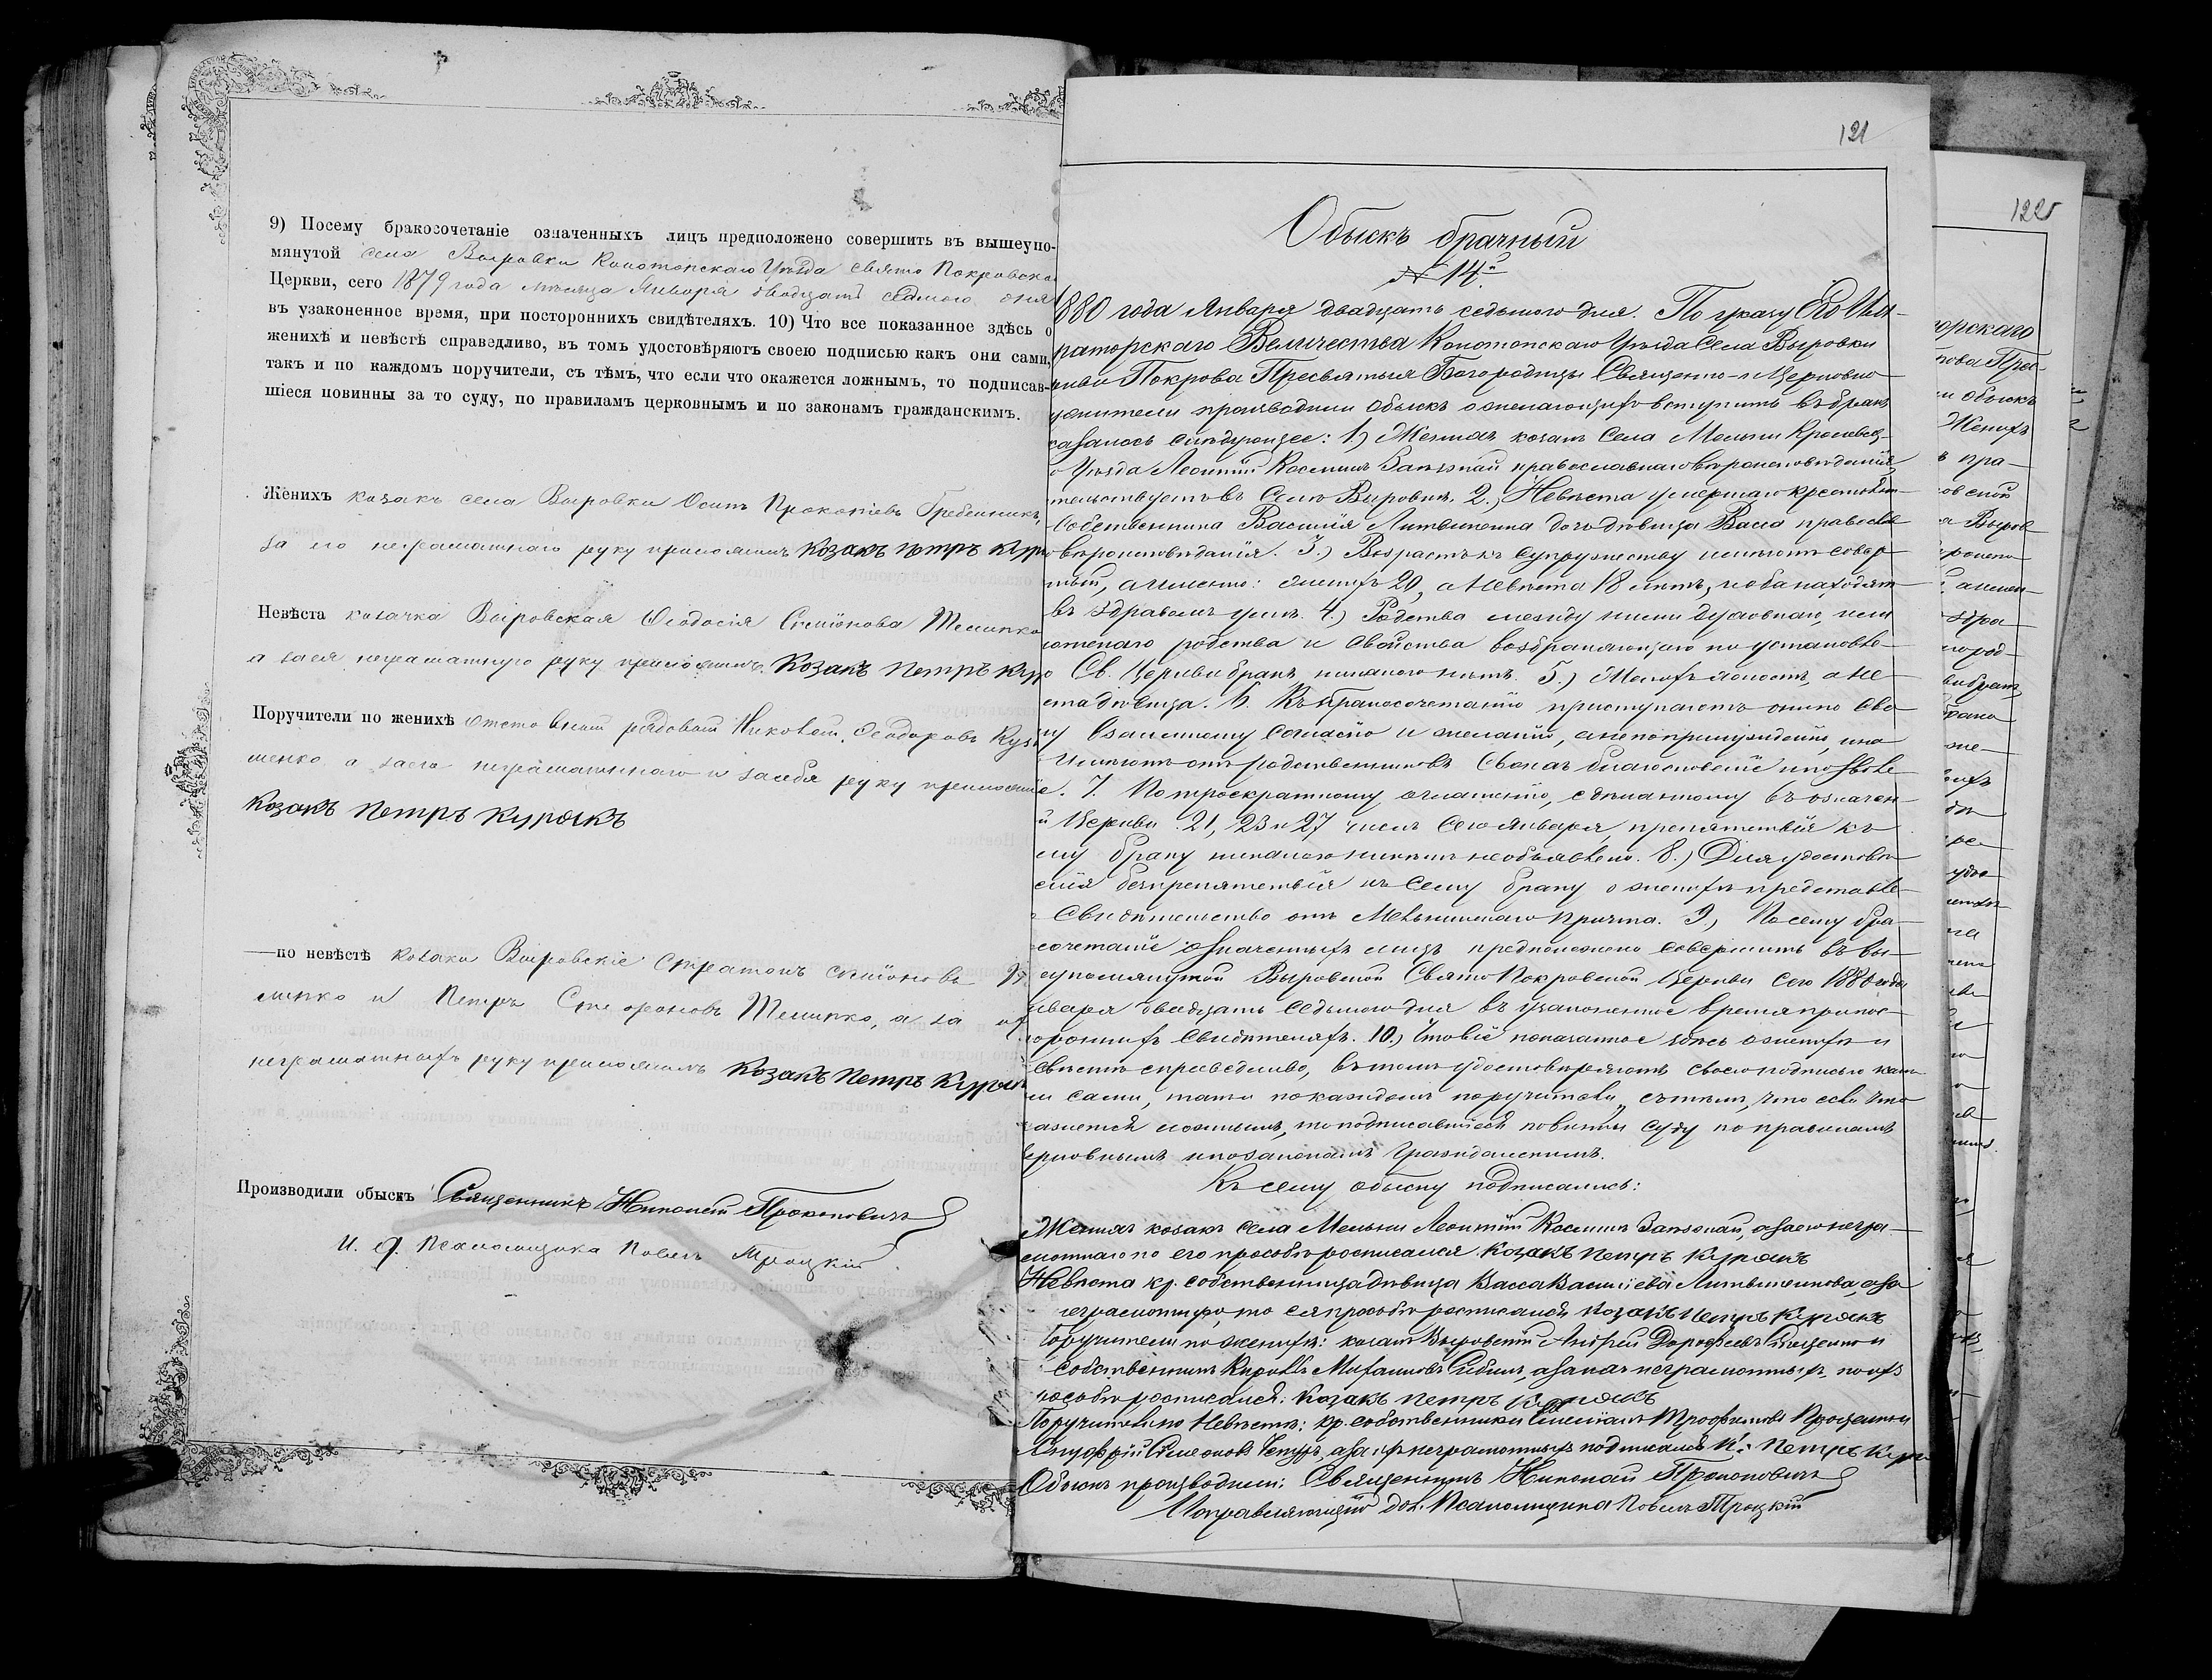 9) Посему бракосочетаніе означенныхъ лицъ предположено совершить въ вышеупо-
мянутой села Выровки Конотопскаго Уѣзда Свято Покровско
Церкви, сего 1879 года мѣсяца Января двадцать седмого дня
въ узаконенное время, при постороннихъ свидѣтеляхъ. 10) Что все показанное здѣсь о
женихѣ и невѣстѣ справедливо, въ томъ удостовѣряютъ своею подписью какъ они сами,
такъ и по каждомъ поручители, съ тѣмъ, что если что окажется ложнымъ, то подписав-
шіеся повинны за то суду, по правиламъ церковнымъ и по законамъ гражданскимъ.
Женихъ козакъ села Выровки Осипъ Прокопіевъ Гребенникъ,
за его неграматнаго руку приложилъ Козакъ Петръ Кур
Невѣста козачка Выровская Ѳеодосія Симіонова
а за ея неграматную руку приложилъ Козакъ Петръ Кур
Поручители по женихѣ отставный рядовый Николай Ѳеодоровъ Куз
менко а за его неграматнаго и за себя руку приложи
Козакъ Петръ Курякъ
—по невѣстѣ козаки Выровскіе Стратонъ Симіоновъ
и Петръ а за
неграматныхъ руку приложилъ Козакъ Петръ Куря
Производили обыскъ Священникъ Николай Прокоповичъ
И. д. Псаломщика Павелъ Троцкій
121
Обыскъ брачный
№ 14й
1880 года Января двадцать седьмого дня. По указу Его Им-
раторскаго Величества Конотопскаго Уѣзда Села Выровки
Покрова Пресвятыя Богородицы Священно-Церковно
ужители производили обыскъ о желающихъ вступить въ бракъ
казалось слѣдующее: 1.) Женихъ козакъ Села Мельни Кролевец-
о Уѣзда Леонтій Косминъ православнаго вѣроисповѣданія,
тельствуетъ въ Селѣ Выровкѣ. 2.) Невѣста умершаго крестьян-
собственника Василія Литвиненка дочь дѣвица Васса правосла
вѣроисповѣданія. 3.) Возрастъ къ супружеству имѣютъ совер
ный, а именно: женихъ 20, а Невѣста 18 лѣтъ, и оба находят
въ здравомъ умѣ. 4.) Родства между ними духовнаго, или
отскаго родства и свойства возбраняющаго по установле
Св. Церкви бракъ, никакого нѣтъ. 5.) Женихъ холостъ, а не
ста дѣвица. 6. Къ бракосочетанію приступаютъ они по сво
му взаимному согласію и желанію, а не по принужденію, и на
имѣютъ отъ родственниковъ своихъ благословеніе и позволе
е. 7. По троекратному оглашенію, сдѣланному въ означен-
й Церкви 21, 23 и 27 числъ сего Января, препятствія къ
му браку никакого никѣмъ не объявлено. 8.) Для удостовѣ
енія безпрепятствія къ сему браку о женихѣ представле
Свидѣтельство отъ Мельнинскаго причта. 9.) По сему бра-
сочетаніе означенныхъ лицъ предположено совершить въ вы-
еупомянутой Выровской Свято Покровской Церкви сего 1880 года
нваря двадцать седьмого дня въ узаконенное время при пос-
оронихъ свидѣтеляхъ. 10.) Что все показанное здѣсь о женихѣ и
евѣстѣ справедливо, въ томъ удостовѣряютъ своею подписью какъ
ни сами, такъ и по каждомъ поручители, съ тѣмъ, что если что
кажется ложнымъ, то подписавшіеся повинны суду по правиламъ
ерковнымъ и по законамъ гражданскимъ.
Къ сему обыску подписались:
Женихъ козакъ села Мельни Леонтій Косминъ а за его негра-
мотнаго по его прозьбѣ росписался Козакъ Петръ Курякъ
Невѣста кр. собственница дѣвица Васса Василіева Литвиненкова, а за
неграмотную, по ея прозьбѣ росписался Козакъ Петръ Курякъ
Поручители по женихѣ: козакъ Выровскій Андрей Дорофеевъ и
собственникъ Кириллъ а за нихъ неграмотныхъ по ихъ
прозьбѣ росписался: Козакъ Петръ Курякъ
Поручители по Невѣстѣ: кр. собственники Симіонъ Трофимовъ и
Онуфрій Симеоновъ а за ихъ неграмотныхъ подписался К. Петръ Куря
Обыскъ производили: Священникъ Николай Прокоповичъ
Исправляющій дол. Псаломщика Павелъ Троцкій
122